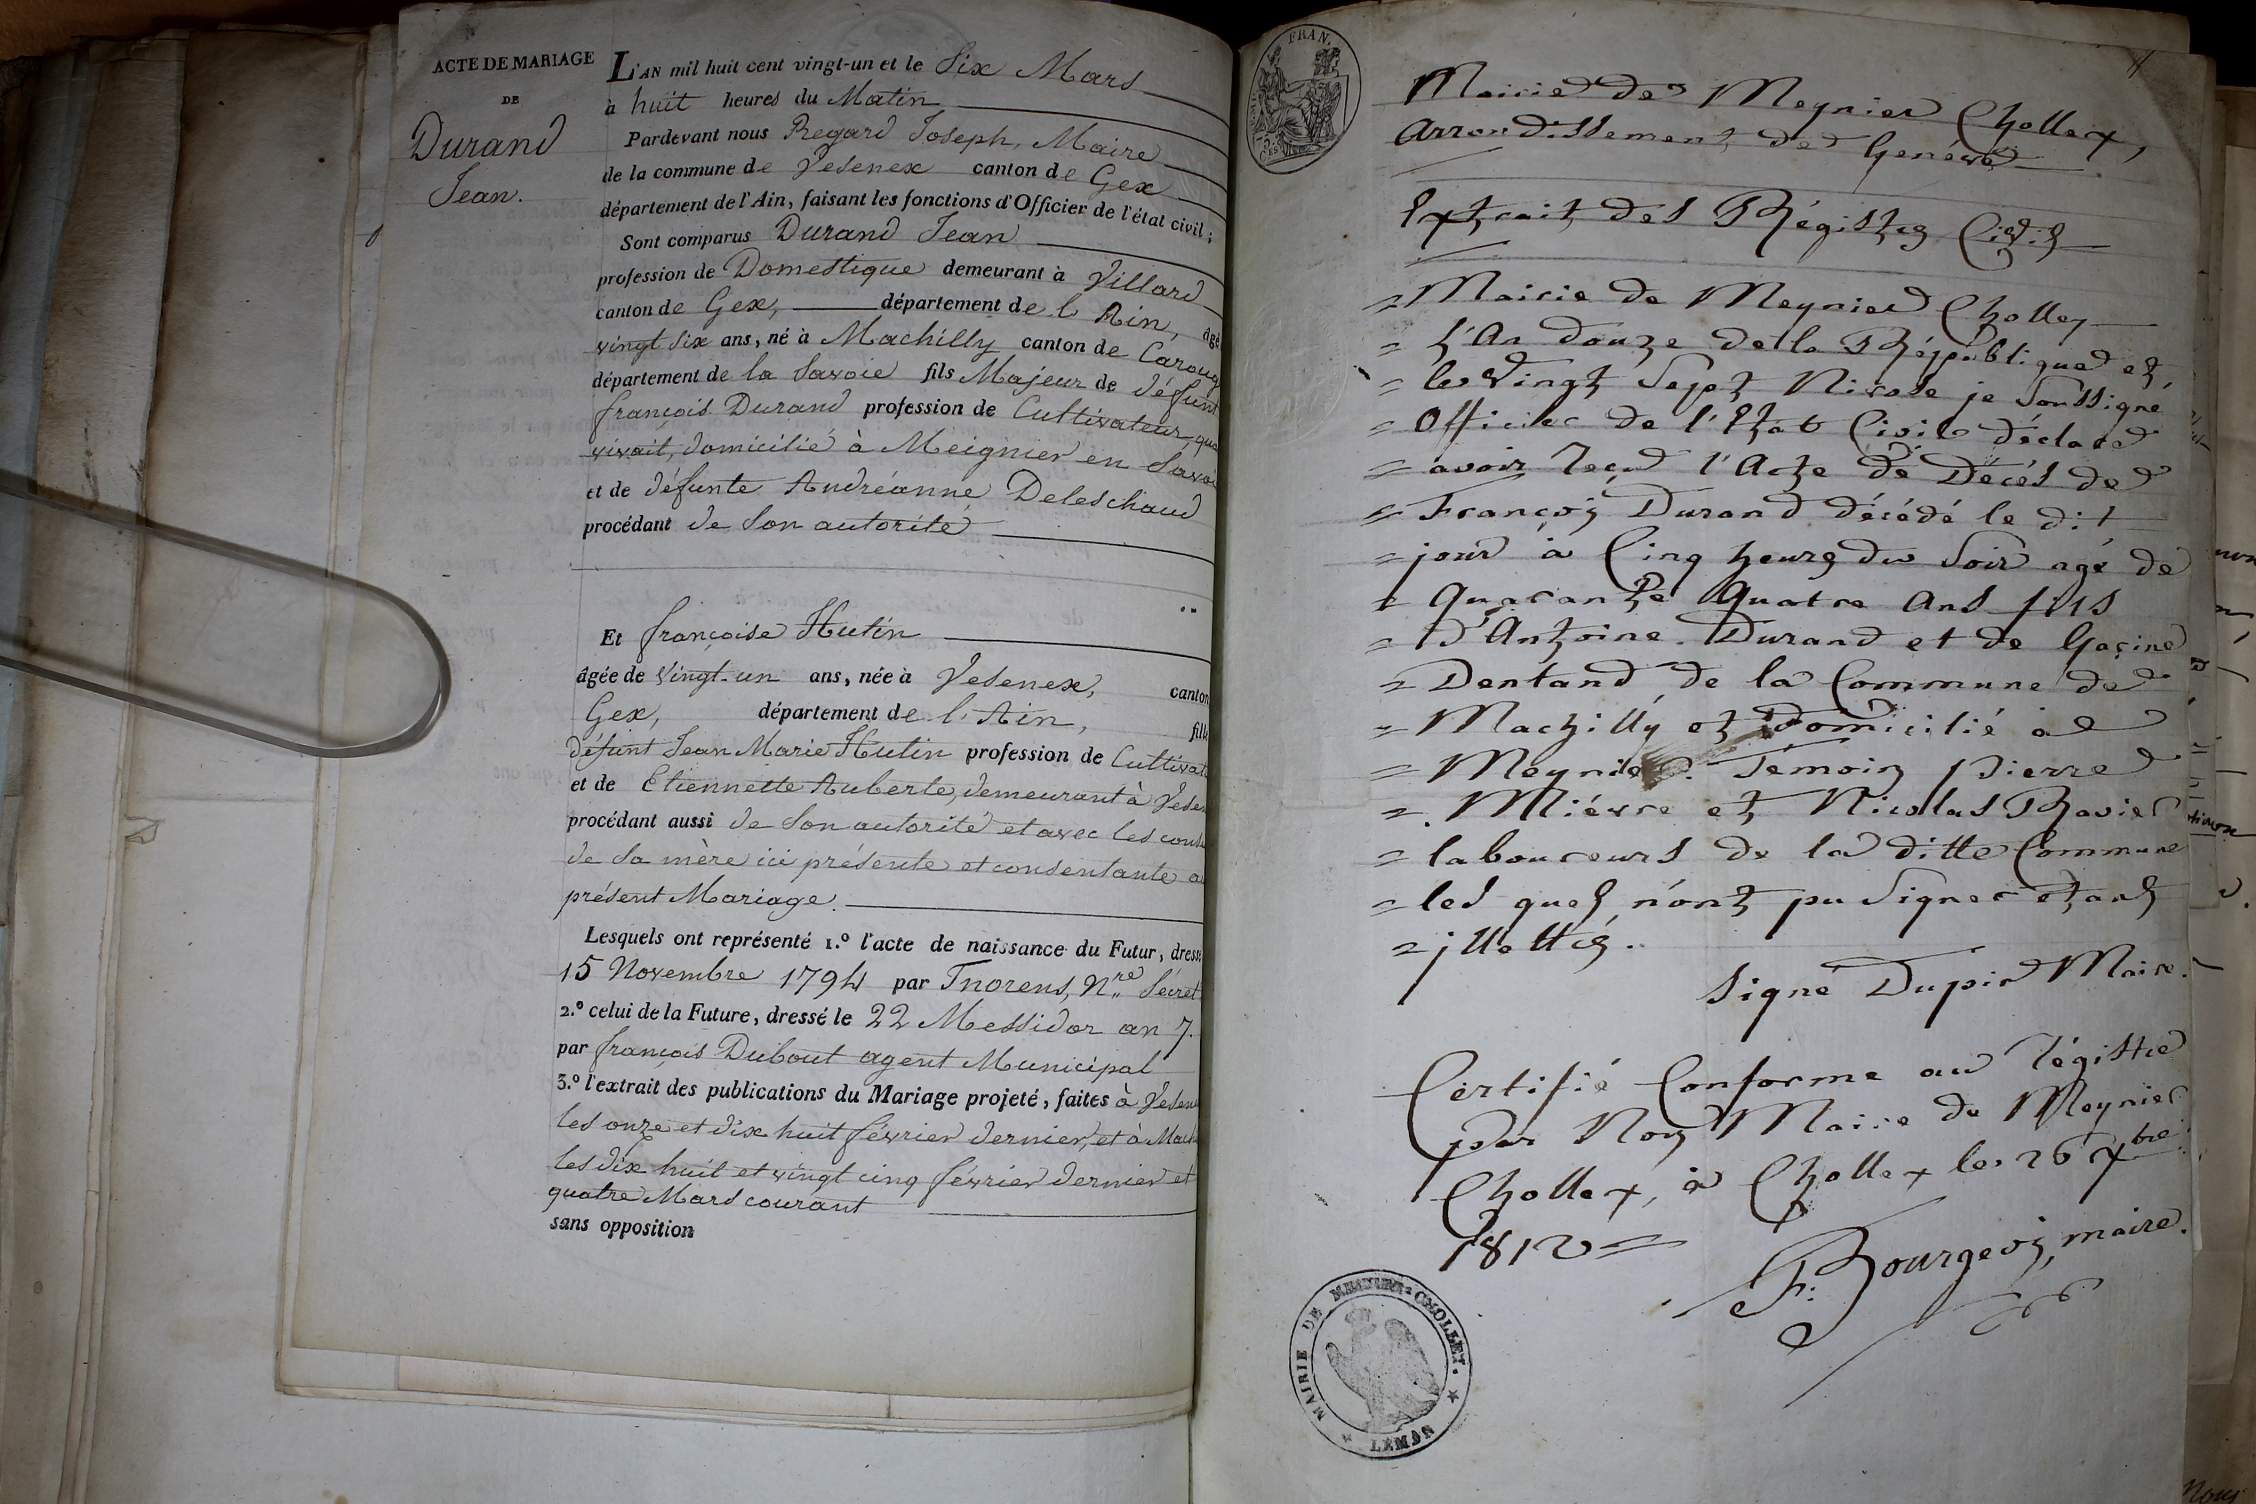 ACTE DE MARIAGE
DE
Durand
Jean.
L'AN mil huit cent vingt-un et le Six Mars
à huit heures du Matin
Pardevant nous Regard Joseph, Maire
de la commune de Vesenex canton de Gex
département de l'Ain, faisant les fonctions d'Officier de l'état civil;
Sont comparus Durand Jean
profession de Domestique demeurant à Villard
canton de Gex, département de l'Ain, âgé
vingt six ans, né à Machilly canton de Caroug
département de la Savoie fils Majeur de défunt
françois Durand profession de Cultivateur qua
vivait, domicilié à Meignier en Savoi
et de défunte Andréanne Deleschaud
procédant de Son autorité
Et françoise Hutin
âgée de vingt-un ans, née à Vesenex, canton
Gex, département de l'Ain, fille
défunt Jean Marie Hutin profession de Cultivat
et de Etiennette Auberte, demeurant à Vesen
procédant aussi de Son autorité et avec les cons
de Sa mère ici présente et consentante a
présent Mariage.
Lesquels ont représenté 1.° l'acte de naissance du Futur, dress
15 Novembre 1794 par Thorens, N.re Sécret
2.° celui de la Future, dressé le 22 Messidor an 7.
par françois Dubout agent Municipal
3.° l'extrait des publications du Mariage projeté, faites à Vesen
les onze et dix huit février dernier, et à Mach
les dix huit et vingt cinq février dernier et
quatre Mars courant
sans opposition
FRAN.
Mairie de Meynier Chollex,
Arrondissement de Genève
Extrait des Régistres Civils
= Mairie de Meynier Chollex
= L'An douze de la Républiqued et
= le Vingt Sept Nivose je Soussigné
= Officier de l'Etat Civil déclare
= avoir reçu l'Acte de Décés de
= François Durand décédé le dit
= jour à Cinq heures du Soir agé de
= Quarante Quatre Ans fils
= d'Antoine Durand et de Gaçine
= Dentand de la Commune de
= Machilly et Domicilié à
= Meynier. Témoins Pierre
= Miévre et Nicolas Ravier
= laboureurs de la ditte Commune
= les quels n'ont pu Signer étant
= jllettrés.
Signé Dupin Maire.
Certifié Conforme au régistre
par Nous Maire de Meynier
Chollex, à Chollex le 26 Xbre
1812 =
F: Bourgeois, maire.
MAIRIE DE MEYNIER-CHOLLEX.
LÉMAN